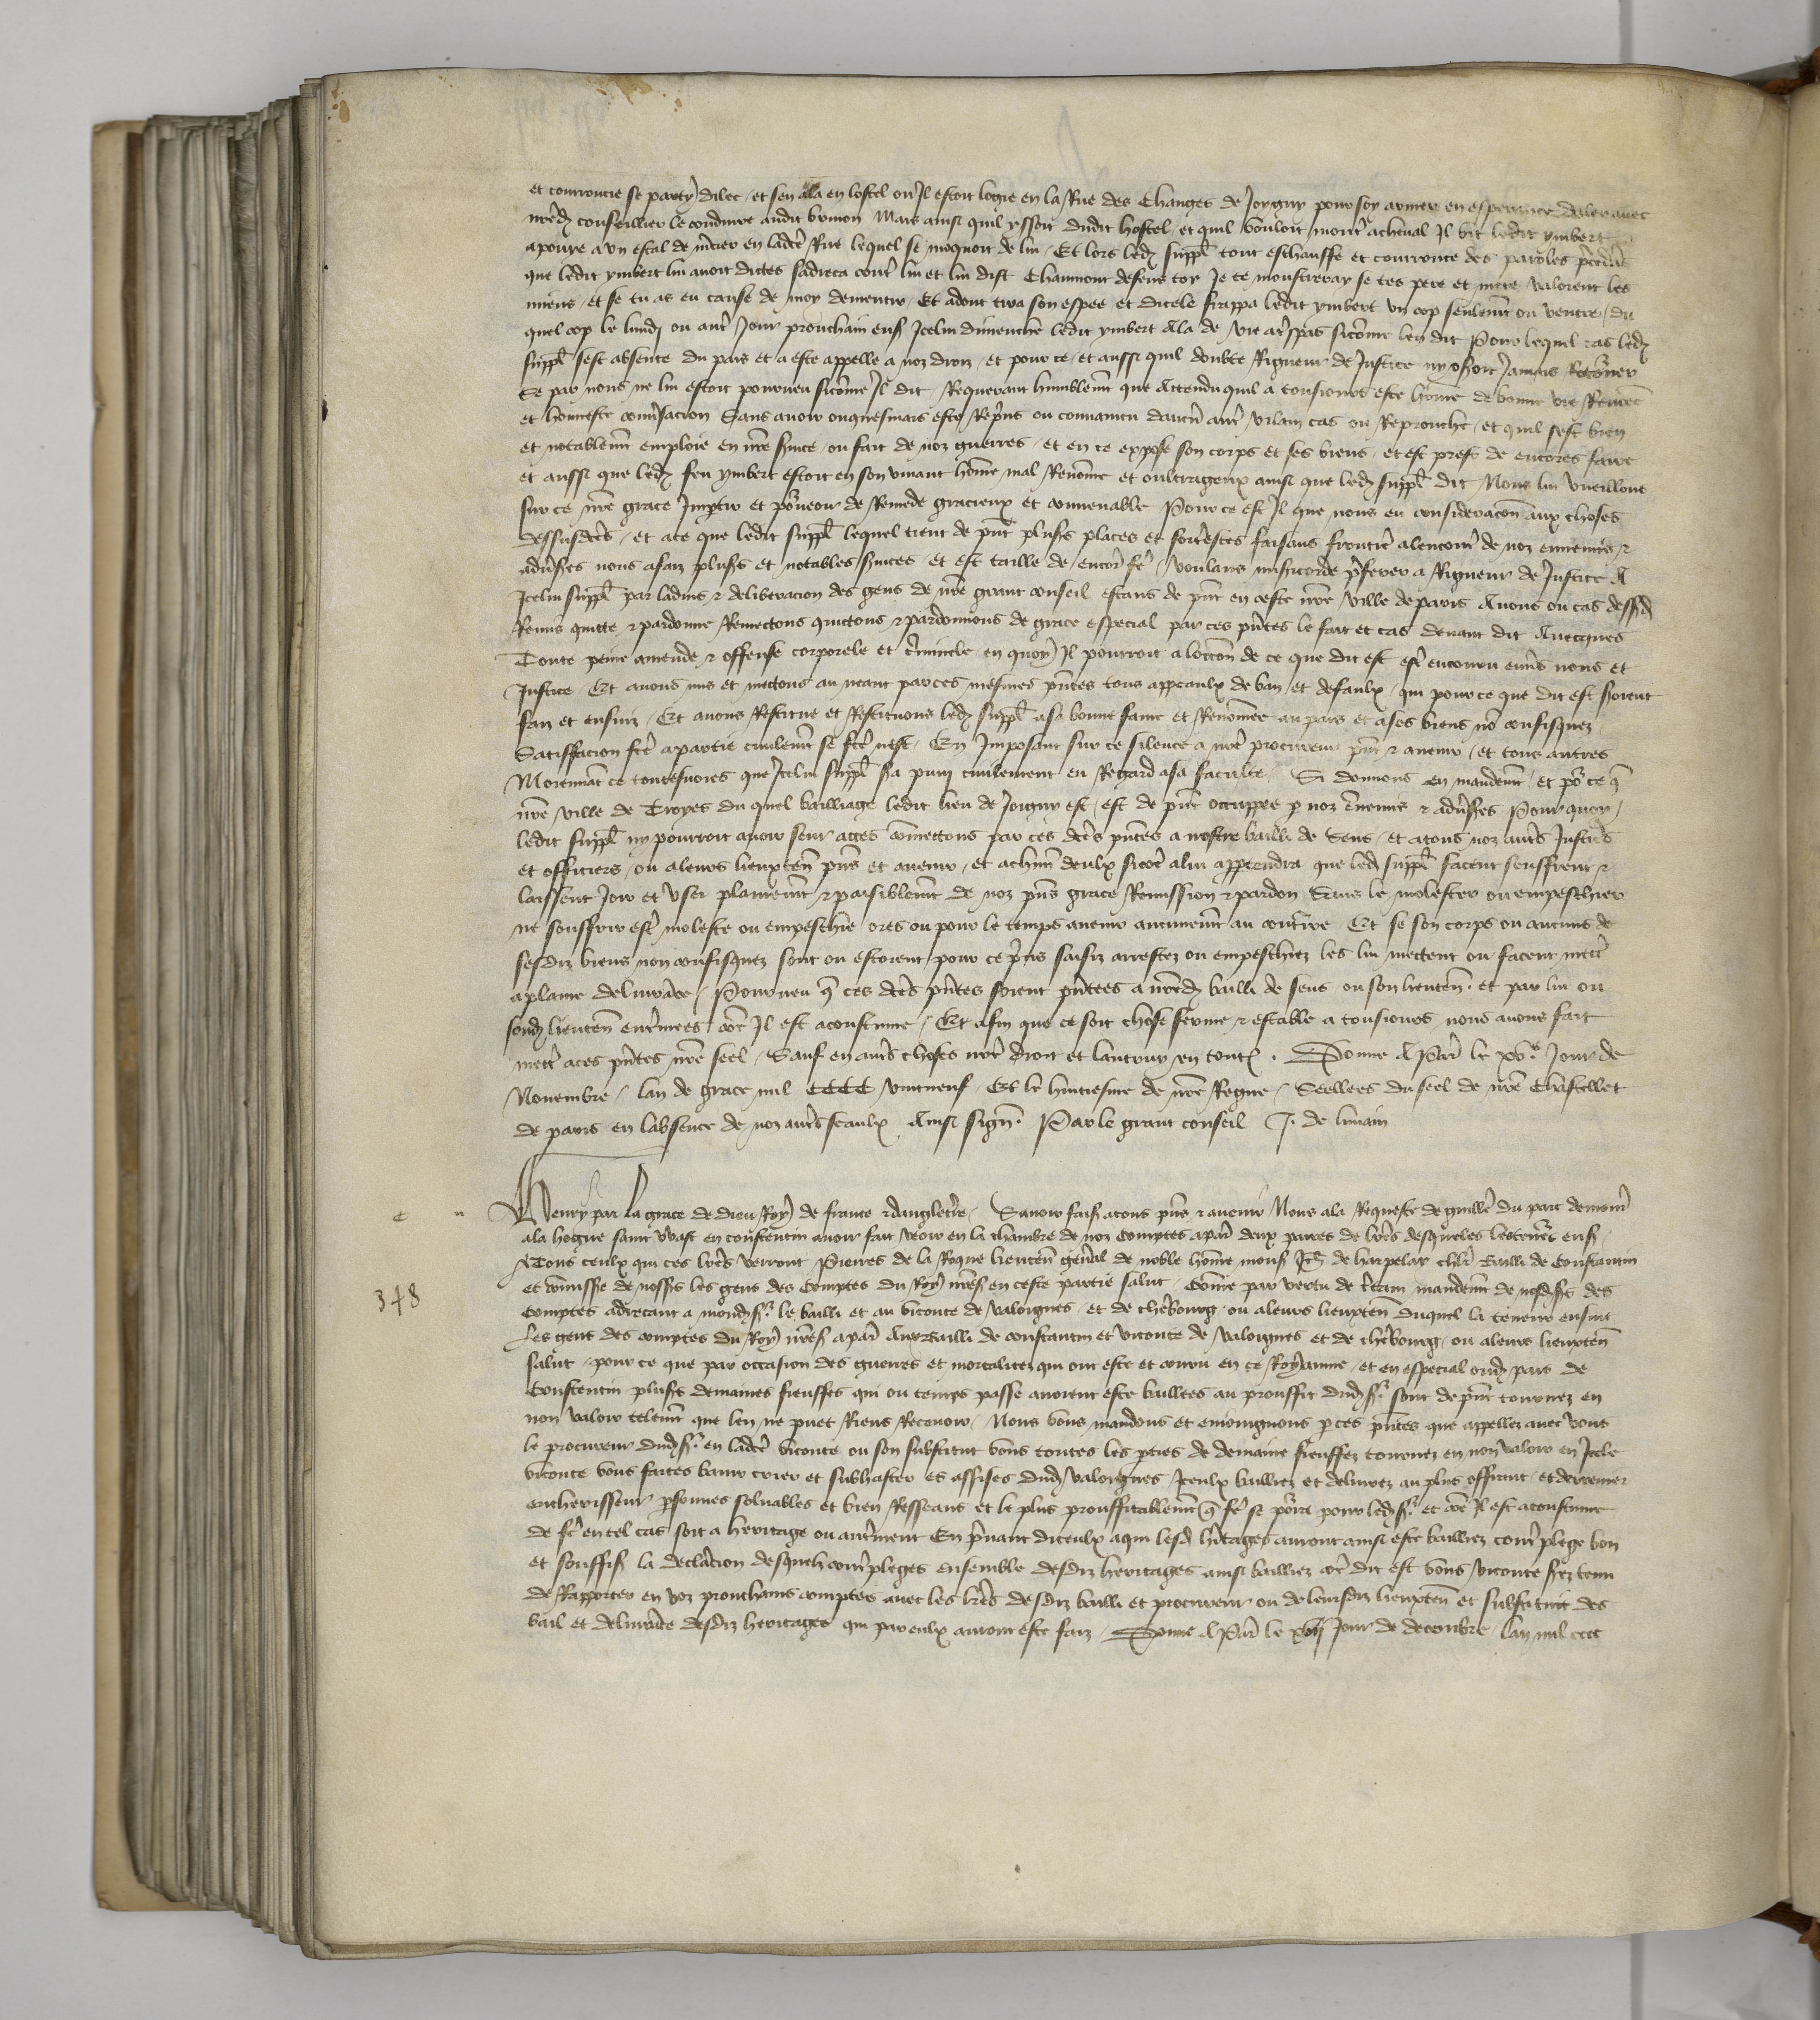 et courroucie se party dilec / et sen ala en lostel ou Il estoit logie en la Rue des Changes de Joigny pour soy armer en esperance daler avec
nredit conseillier le conduire audit Brinon Mais ainsi quil yssoit dudit hostel / et quil vouloit mont acheval Il vit ledit ymbert
apoye a un estal de mcier en ladce Rue lequel se moquoit de lui / Et lors led suppl tout eschauffe et courrouce des paroles
que ledit ymbert lui avoit dictes sadreca cont lui et lui dist Chaumont defens toy Je te monstreray se tes pere et mere valoient les
miens / et se tu as eu cause de moy dementir / Et adonc tira son espee et dicele frappa ledit ymbert un cop seulemt ou ventre / du
quel cop le lundi ou aut Jour prouchain ens Icelui dimenche ledit ymbert Ala de vie a trespas sicome len dit Pour lequel cas led
suppl sest absente du pais et a este appelle a noz droiz / et pour ce / et aussi quil doubte Rigueur de Justice ny oseroit Jamais Retorner
Se par nous ne lui estoit pourveu sicome Il dit / Requerant humblemt que Attendu quil a tousiours este home de bonne vie Renomee
et honneste conversacion Sans avoir onquesmais este Reprins ou convaincu daucun aut vilain cas ou Reprouche / et quil sest bien
et notablemt emploie en nre service / ou fait de noz guerres / et en ce expose son corps et ses biens / et est prest de encores faire
et aussi que led feu ymbert estoit en son vivant home mal Renome et oultrageux ainsi que led suppl dit Nous lui vueillons
sur ce nre grace Impartir et pourveoir de Remede gracieux et convenable Pour ce est Il que nous eu consideracon aux choses
dessusdces / et ace que ledit suppl lequel tient de pnt plus places et forteresces faisans frontiere alencont de noz ennemis &
adversres nous a faiz plus et notables services / et est taille de encor fe / voulans misericorde preferer a Rigueur de Justice A
Icelui suppl par ladvis & deliberacion des gens de nre grant conseil estans de pnt en ceste nre ville de paris Avons ou cas dessusd
Remis quitte & pardonne Remectons quictons & pardonnons de grace especial par ces pntes le fait et cas devant dit Avecques
Toute peine amende & offense corporele et criminele en quoy Il pourroit a loccon de ce que dit est est encouru envers nous et
Justice / Et avons mis et mectons au neant par ces mesmes pntes tous appeaulx de ban / et defaulx / qui pour ce que dit est seroient
faiz et ensuiz / Et avons Restitue et Restituons led suppl asa bonne fame et Renomee au pais et ases biens no confisquez
Satisfacion fce a partie civilemt se fce nest / En Imposant sur ce silence a nre procureur pnt & avenir / et tous autres
Moiennant ce toutesvoies que Icelui suppl sera puny civilement eu Regard asa faculte Si donnons en mandemt / et por ce q
nre ville de Troyes du quel bailliage ledit lieu de Joigny est / est de pnt occuppee p noz Ennemis & adversres Pourquoy
ledit suppl ny pourroit avoir seur acces Comettons par ces dces pntes a nostre bailli de Sens / et atous noz autrs Justics
et officiers / ou aleurs lieuxten pns et avenir / et achun deulx sicome alui appartendra que led suppl facent seuffrent &
laissent Joir et User plainemt & paisiblemt de noz pns grace Remission & pardon Sans le molester ou empescher
ne souffrir est moleste ou empesche ores ou pour le temps avenir aucunemt au contraire Et se son corps ou aucuns de
sesdiz biens non confisquez sont ou estoient / pour ce pris saisiz arrestez ou empeschez les lui mettent ou facent mett
a plaine delivrance / Pourveu q ces dces pntes soient pntees a nred bailli de sens ou son lieuten. et par lui ou
sond lieuten enterinees coe Il est acoustume / Et afin que ce soit chose ferme & estable a tousiours nous avons fait
mett aces pntes nre seel / Sauf en auts choses nre droit et lautruy en touts . Donne A Paris le xve Jour de
Novembre / lan de grace mil CCCC vintneuf / Et le huitiesme de nre Regne / Seellees du seel de nre Chastellet
de paris en labsence de noz auts seaulx Ainsi sign. Par le grant conseil J. de lunain
Henry par la grace de Dieu Roy de france & dangletre / Savoir fais atous pns & avenir Nous ala Requeste de guille du parc demour
ala hogue saint Vvast en coustentin avoir fait veoir en la chambre de noz comptes apar deux paires de lres desqueles les teneurs ens
A Tous ceulx qui ces lres verront Pierres de la Roque lieuten genal de noble home mons Jeh de harpelay chlr Bailli de Constantin
et comisse de nossrs les gens des comptes du Roy nres en ceste partie salut / Come par vertu de certain mandemt de nosdsrs des
comptes adrecant a mondsr le bailli et au viconte de Valoignes / et de cherbourg / ou aleurs lieuxten duquel la teneur ensuit
Les gens des comptes du Roy nres a par Aux Bailli de constantin et viconte de Valoignes et de cherbourg / ou aleurs lieuxten
salut / pour ce que par occasion des guerres et mortalitez qui ont este et couru en ce Royaume / et en especial oud pais de
Constentin plus demaines fieuffes qui ou temps passe avoient este baillees au prouffit dudsr sont de pnt tournez en
non valoir telemt que len ne puet Riens Recevoir / Nous vous mandons et enioingnons p ces pntes que appellez avec vous
le procureur dudsr en ladce viconte ou son substitut vous toutes les pties de demaine fieuffez tournez en non valoir en Icele
viconte vous faites banir crier et subhaster es assises dud Valoignes Iceulx bailliez et delivrez au plus offrant / et derrenier
encherisseur psonnes solvables et bien Resseans et le plus prouffitablemt q fe se pora pour ledsr et coe Il est acoustume
de fe en tel cas soit a heritage ou autrement En prenant diceulx aqui lesd heritages auront ainsi este bailliez cont plege bon
et souffis la declaracion desquelz cont pleges ensemble desdiz heritages ainsi bailliez coe dit est vous viconte serez tenu
de Rapporter en voz prouchains comptes avec les lres desdiz bailli et procureur ou de leursdiz lieuxten et substitut des
bail et delivrance desdiz heritages qui par eulx auront este faiz / Donne A Paris le Jour de decembre lan mil cccc
378